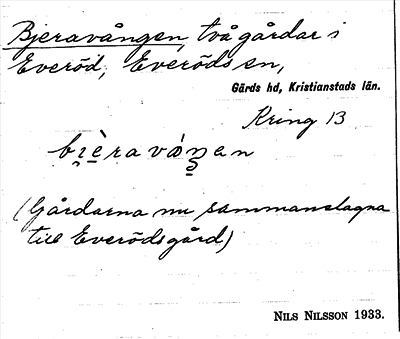 Bjeravången, två gårdar i
Everöd, Everöds sn,
Gärds hd, Kristianstads län.
Kring 13
(Gårdarna nu sammanslagna
till Everödsgård)
NILS NILSSON 1933.